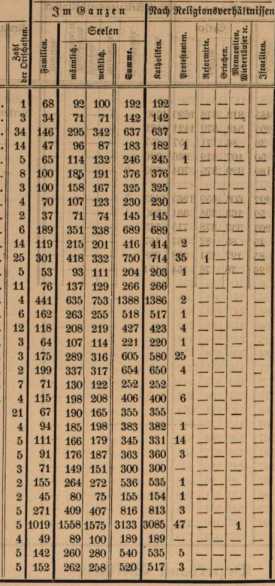 Im Ganzen Nach Religionsverhältnissen
Seelen
Zahl der Ortschaften. Familien. männlich. weiblich. Summe. Katholiken. Protestanten. Reformirte. Griechen. Mennoniten, Wiedertäufer ꝛc. Israeliten.
. 1 68 92 100 192 192 — — — — —
. 3 34 71 71 142 142 — — — — —
. 34 146 295 342 637 637 — — — — —
. 14 47 96 87 183 182 1 — — — —
. 5 65 114 132 246 245 1 — — — —
. 8 100 185 191 376 376 — — — — —
. 3 100 158 167 325 325 — — — — —
. 4 70 107 123 230 230 — — — — —
. 2 37 71 74 145 145 — — — — —
. 6 189 351 338 689 689 — — — — —
. 14 119 215 201 416 414 2 — — — —
. 25 301 418 332 750 714 35 1 — — —
. 5 53 93 111 204 203 1 — — — —
. 11 76 137 129 266 266 — — — — —
. 4 441 635 753 1388 1386 2 — — — —
. 6 162 263 255 518 517 1 — — — —
. 12 118 208 219 427 423 4 — — — —
. 3 64 107 114 221 220 1 — — — —
. 3 175 289 316 605 580 25 — — — —
. 2 199 337 317 654 650 4 — — — —
. 7 71 130 122 252 252 — — — — —
. 4 115 198 208 406 400 6 — — — —
. 21 67 190 165 355 355 — — — — —
. 4 94 185 198 383 382 1 — — — —
. 5 111 166 179 345 331 14 — — — —
. 5 91 176 187 363 360 3 — — — —
. 3 71 149 151 300 300 — — — — —
. 2 155 264 272 536 535 1 — — — —
. 2 45 80 75 155 154 1 — — — —
. 5 271 409 407 816 813 3 — — — —
. 5 1019 1558 1575 3133 3085 47 — — 1 —
. 4 49 89 100 189 189 — — — — —
. 5 142 260 280 540 535 5 — — — —
. 5 152 262 258 520 517 3 — — — —